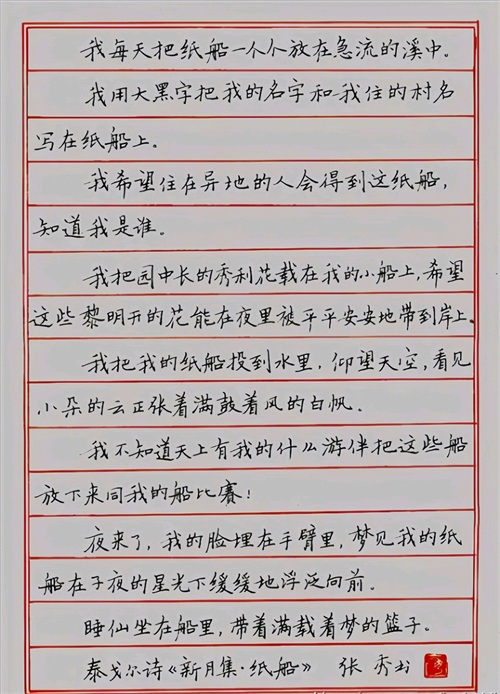 我每天把纸船一个个放在急流的溪中。
我用大黑字把我的名字和我住的村名
写在纸船上。
我希望住在异地的人会得到这纸船，
知道我是谁。
我把园中长的秀利花载在我的小船上，希望
这些黎明开的花能在夜里被平平安安地带到岸上。
我把我的纸船投到水里，仰望天空，看见
小朵的云正张着满鼓着风的白帆。
我不知道天上有我的什么游伴把这些船
放下来同我的船比赛！
夜来了，我的脸埋在手臂里，梦见我的纸
船在子夜的星光下缓缓地浮泛向前。
睡仙坐在船里，带着满载着梦的篮子。
泰戈尔诗《新月集·纸船》 张秀书
秀